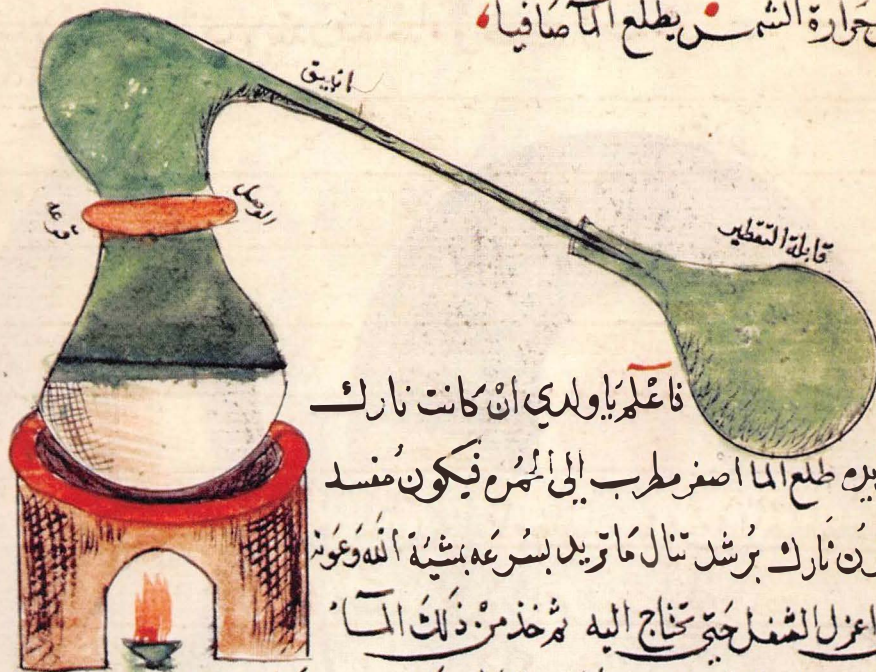 حرارة الشمس يطلع الما صافيا
انبيق
الوصل
قرعه
قابلة التقطير
فاعلم يا ولدي ان كانت نارك
طلع الما اصفر مطرب إلى الحمره فيكون مفسد
نارك برشد تنال ما تريد بسرعه بمشيئة الله وعونه
اعزل الثفل حتى تحتاج اليه ثم خذ من ذلك الما